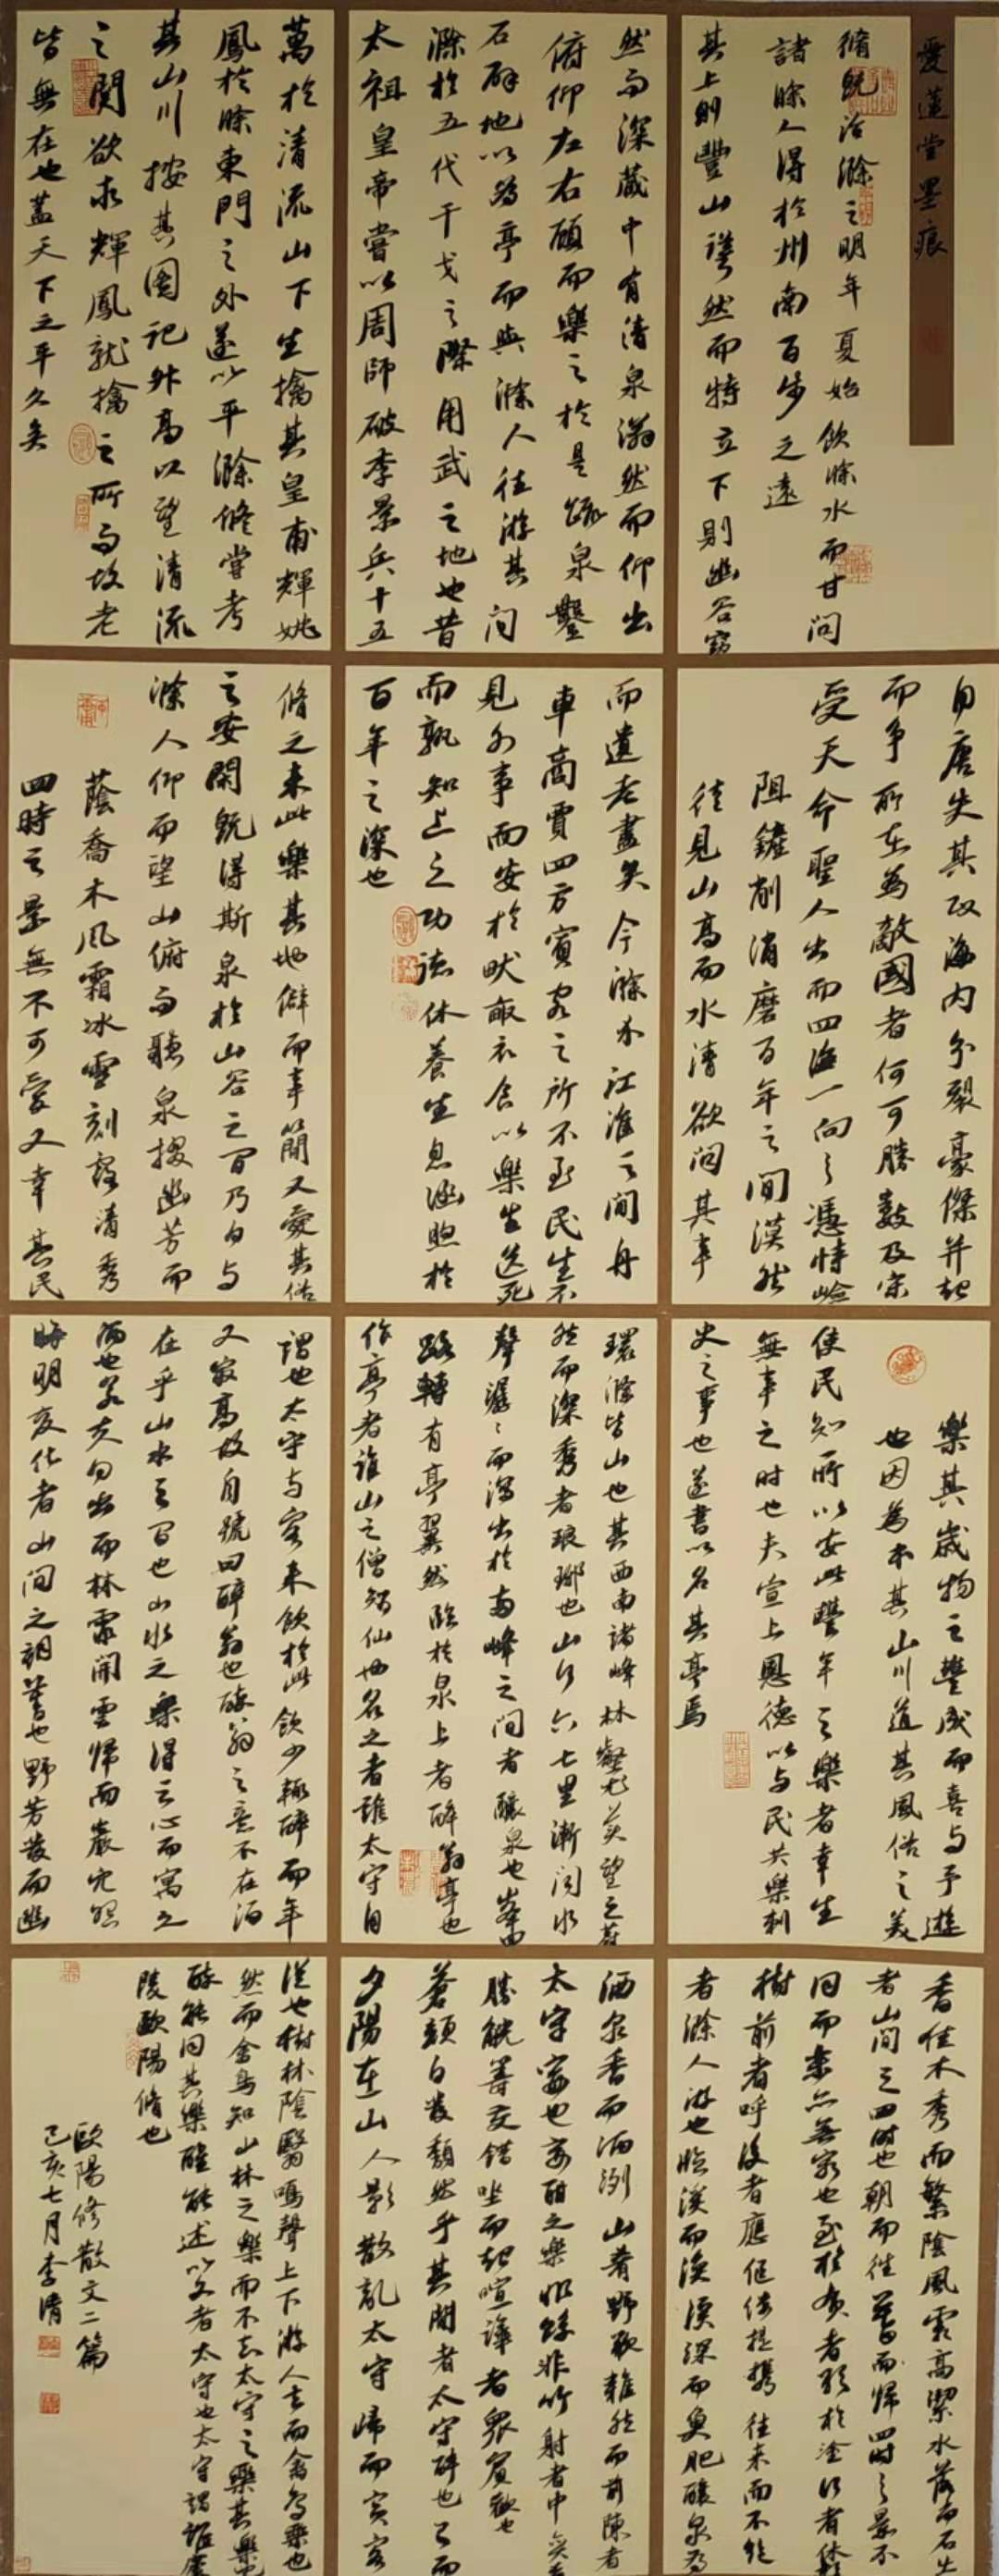 愛蓮堂墨痕
脩既治滁之明年夏始飲滁水而甘問
諸滁人得於州南百步之遠
其上則豐山聳然而特立下則幽谷窈
然而深藏中有清泉滃然而仰出
俯仰左右顧而樂之於是疏泉鑿
石辟地以為亭而與滁人往游其間
滁於五代干戈之際用武之地也昔
太祖皇帝嘗以周師破李景兵十五
萬於清流山下生擒其皇甫輝姚
鳳於滁東門之外遂以平滁脩嘗考
其山川按其圖記升高以望清流
之關欲求輝鳳就擒之所而故老
皆無在也蓋天下之平久矣
自唐失其政海內分裂豪傑并起
而爭所在為敵國者何可勝數及宋
受天命聖人出而四海一向之憑恃險
阻鏟削消磨百年之間漠然
徒見山高而水清欲問其事
而遺老盡矣今滁介江淮之間舟
車商賈四方賓客之所不至民生不
見外事而安於畎畝衣食以樂生送死
而孰知上之功德休養生息涵煦於
百年之深也
脩之來此樂其地僻而事簡又愛其俗
之安閑既得斯泉於山谷之間乃日與
滁人仰而望山俯而聽泉掇幽芳而
蔭喬木風霜冰雪刻露清秀
四時之景無不可愛又幸其民
樂其歲物之豐成而喜與予遊
也因為本其山川道其風俗之美
使民知所以安此豐年之樂者幸生
無事之時也夫宣上恩德以與民共樂刺
史之事也遂書以名其亭焉
環滁皆山也其西南諸峰林壑尤美望之蔚
然而深秀者琅琊也山行六七里漸聞水
聲潺潺而瀉出於兩峰之間者釀泉也峯回
路轉有亭翼然臨於泉上者醉翁亭也
作亭者誰山之僧智仙也名之者誰太守自
謂也太守与客來飲於此飲少輒醉而年
又最高故自號曰醉翁也醉翁之意不在酒
在乎山水之間也山水之樂得之心而寓之
酒也若夫日出而林霏開雲歸而巖穴暝
晦明變化者山間之朝暮也野芳發而幽
香佳木秀而繁陰風霜高潔水落而石出
者山間之四時也朝而往暮而歸四時之景不
同而樂亦無窮也至於負者歌於塗行者休於
樹前者呼後者應傴僂提攜往來而不絕
者滁人游也臨溪而漁溪深而魚肥釀泉為
酒泉香而酒洌山肴野蔌雜然而前陳者
太守宴也宴酣之樂非絲非竹射者中弈者
勝觥籌交錯坐而起喧譁者衆賓歡也
蒼顏白髮頹然乎其間者太守醉也已而
夕陽在山人影散亂太守歸而賓客
從也樹林陰翳鳴聲上下游人去而禽鳥樂也
然而禽鳥知山林之樂而不知太守之樂其樂也
醉能同其樂醒能述以文者太守也太守謂誰廬
陵歐陽脩也
歐陽修散文二篇
己亥七月李清